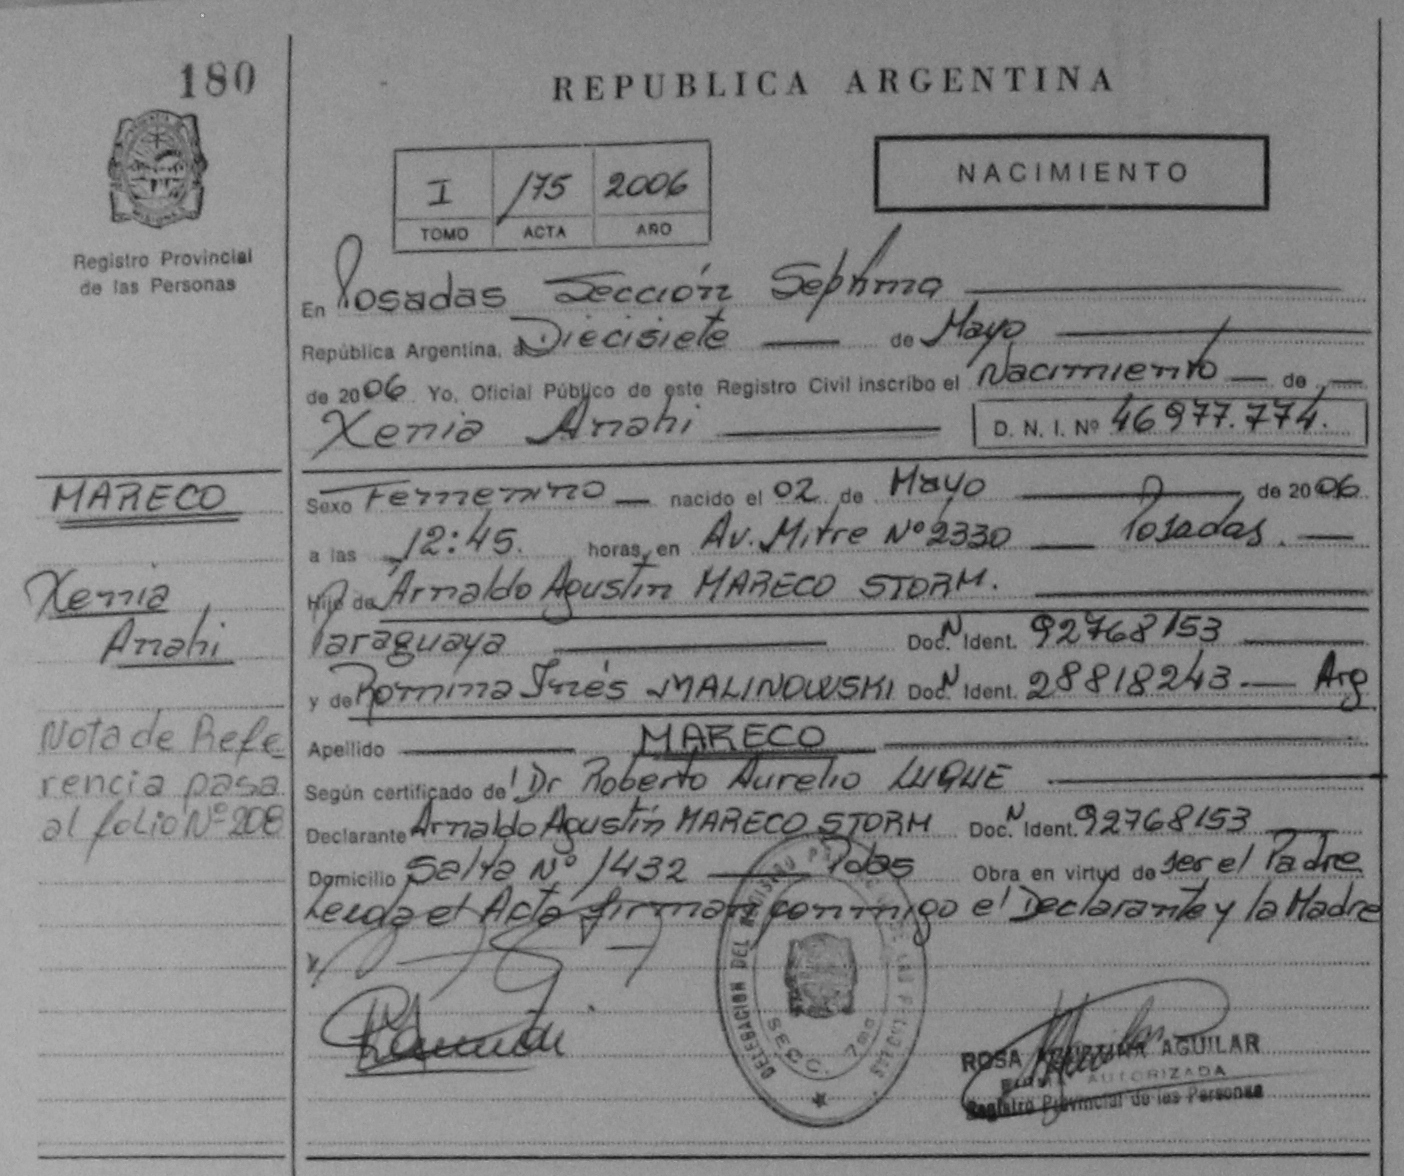 180
REPUBLICA ARGENTINA
Registro Provincial
de las Personas
I 175 2006
TOMO ACTA AÑO
NACIMIENTO
En Posadas Sección Septima
República Argentina, a Diecisiete de Mayo
de 2006 Yo, Oficial Público de este Registro Civil inscribo el Nacimiento de
Xenia Anahi D. N. I. Nº 46977.774.
MARECO
Xenia
Anahi
Nota de Refe
rencia pasa
al folio Nº 208
Sexo Femenino nacido el 02 de Mayo de 2006
a las 12:45. horas, en Av. Mitre Nº 2330 Posadas.
Hijo de Arnaldo Agustín MARECO STORM.
Paraguaya Doc. N Ident. 92768153
y de Romina Inés MALINOWSKI Doc. N Ident. 28818243 Arg
Apellido MARECO
Según certificado del Dr Roberto Aurelio LUQUE
Declarante Arnaldo Agustín MARECO STORM Doc. N Ident. 92768153
Domicilio Salta Nº 1432 Pdas Obra en virtud de ser el Padre
Leida el Acta firman conmigo el Declarante y la Madre
DELEGACION DEL REGISTRO DE LAS PERSONAS
SECC. 7ma
ROSA AGUSTINA AGUILAR
FIRMA AUTORIZADA
Registro Provincial de las Personas